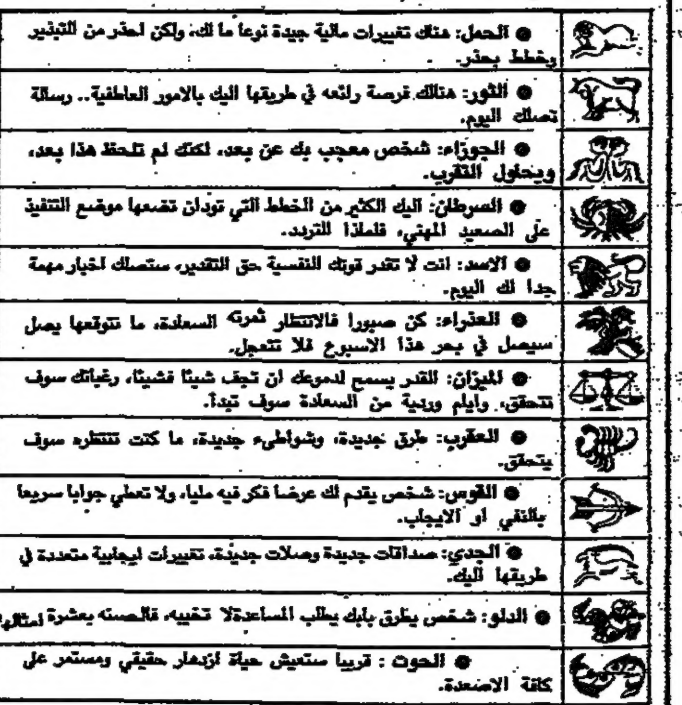 ● الحمل: هناك تغييرات مالية جيدة نوعا ما لك، ولكن احذر من التبذير
وخطط بحذر.
● الثور: هنالك فرصة رائعه في طريقها اليك بالامور العاطفية.. رسالة
تصلك اليوم.
● الجوزاء: شخص معجب بك عن بعد، لكنك لم تلحظ هذا بعد،
ويحاول التقرب.
● السرطان: اليك الكثير من الخطط التي تودان تضعها موضع التنفيذ
على الصعيد المهني، فلماذا التردد.
● الاسد: انت لا تقدر قوتك النفسية حق التقدير، ستصلك اخبار مهمة
جدا لك اليوم.
● العذراء: كن صبورا فالانتظار ثمرته السعادة، ما تتوقعها يصل
سيصل في بحر هذا الاسبوع فلا تتعجل.
● الميزان: القدر يسمح لدموعك ان تجف شيئا فشيئا، رغباتك سوف
تتحقق، وايام وردية من السعادة سوف تبدأ.
● العقرب: طرق جديدة، وشواطىء جديدة، ما كنت تنتظره سوف
يتحقق.
● القوس: شخص يقدم لك عرضا فكر فيه مليا، ولا تعطي جوابا سريعا
بالنفي او الايجاب.
● الجدي: صداقات جديدة وصلات جديدة، تغييرات ايجابية متعددة في
طريقها اليك.
● الدلو: شخص يطرق بابك يطلب المساعدةلا تخيبه، فالحسنه بعشرة امثالها
● الحوت : قريبا ستعيش حياة ازدهار حقيقي ومستمر على
كافة الاصعدة.